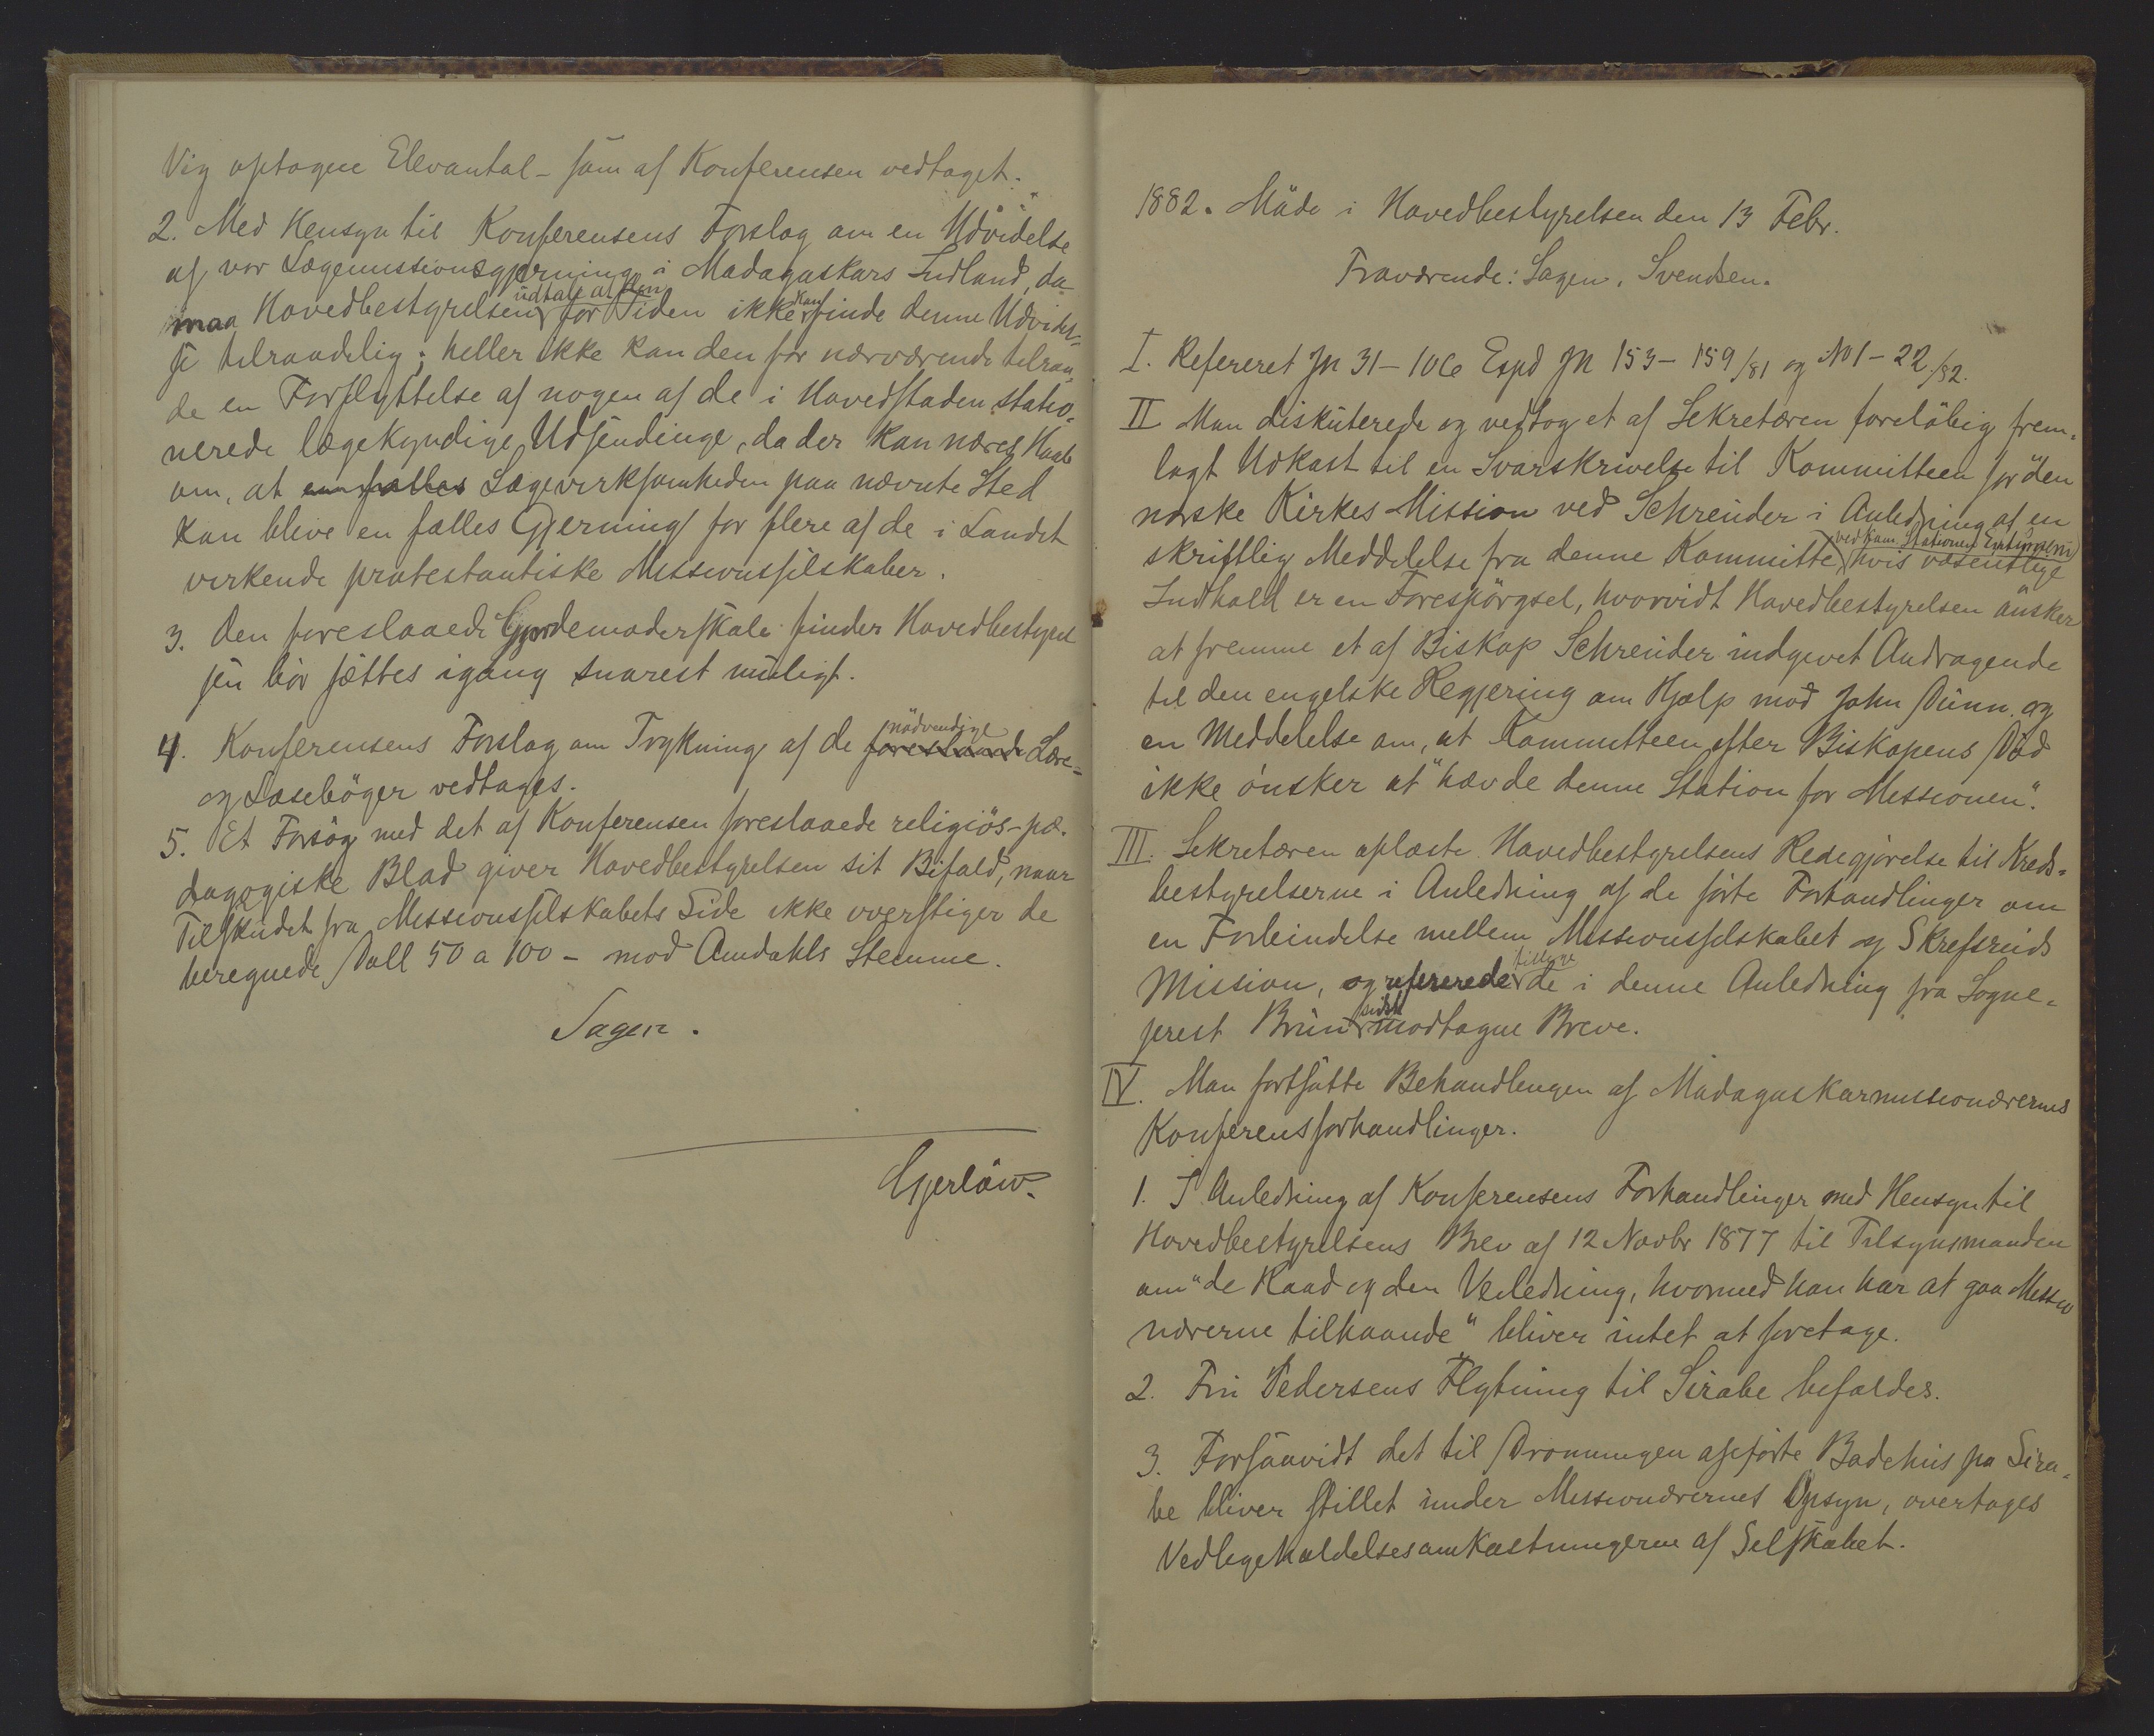 Vig optagne Elevantal – som af Konferensen vedtaget.
2. Med Hensyn til Konferensens Forslag om en Udvidelse
af vor Lægemissionsgjerning i Madagaskars Indland, da
maa Hovedbestyrelsen udtale at den for Tiden ikke kan finde denne Udvidel-
se tilraadelig; heller ikke kan den for nærværende tilraa-
de en Forflyttelse af nogen af de i Hovedstaden statio-
nerede lægekyndige Udsendinge, da der kan næres Haab
om, at en fælles Lægevirksomheden paa nævnte Sted
kan blive en fælles Gjerning for flere af de i Landet
virkende protestantiske Missionsselskaber.
3. Den foreslaaede Gjordemoderskole finder Hovedbestyrel
sen bör sættes igang snarest muligt.
4. Konferensens Forslag om Trykning af de foreslaaede nödvendige Lære-
og Læseböger vedtages.
5. Et Forsög med det af Konferensen foreslaaede religiös-pæ-
dagogiske Blad giver Hovedbestyrelsen sit Bifald, naar
Tilskudet fra Missionsselskabets Side ikke overstiger de
beregnede Doll 50 a 100 – mod Amdahls Stemme.
Sagen.
Gjerlöw.
1882. Möde i Hovedbestyrelsen den 13 Febr.
Fraværende: Sagen, Svendsen.
I. Refereret Jn 31–106 Expd Jn 153–159/81 og No 1–22/82.
II Man diskuterede og vedtog et af Sekretæren forelöbig frem-
lagt Udkast til en Svarskrivelse til Kommitteen for den
norske Kirkes Mission ved Schreuder i Anledning af en
skriftlig Meddelelse fra denne Kommitte ved kom. Stationen hvis væsentlige
Indhold er en Forespörgsel, hvorvidt Hovedbestyrelsen önsker
at fremme et af Biskop Schreuder indgivet Andragende
til den engelske Regjering om Hjælp mod John Dunn og
en Meddelelse om, at Kommitteen efter Biskopens Död
ikke önsker at "hævde denne Station for Missionen".
III. Sekretæren oplæste Hovedbestyrelsens Redegjörelse til Kreds-
bestyrelserne i Anledning af de förte Forhandlinger om
en Forbindelse mellem Missionsselskabet og Skrefsruds
Mission, og refererede tillige de i denne Anledning fra Sogne-
prest Brun sidst modtagne Breve.
IV. Man fortsatte Behandlingen af Madagaskarmissionærernes
Konferensforhandlinger.
1. I Anledning af Konferensens Forhandlinger med Hensyn til
Hovedbestyrelsens Brev af 12 Novbr 1877 til Tilsynsmanden
om "de Raad og den Veiledning, hvormed han har at gaa Missio
nærerne tilhaande" bliver intet at foretage.
2. Fru Pedersens Flytning til Sirabe bifaldes.
3. Forsaavidt det til Dronningen opförte Badehus paa Sira-
be bliver stillet under Missionærernes Opsyn, overtages
Vedligeholdelsesomkostningerne af Selskabet.